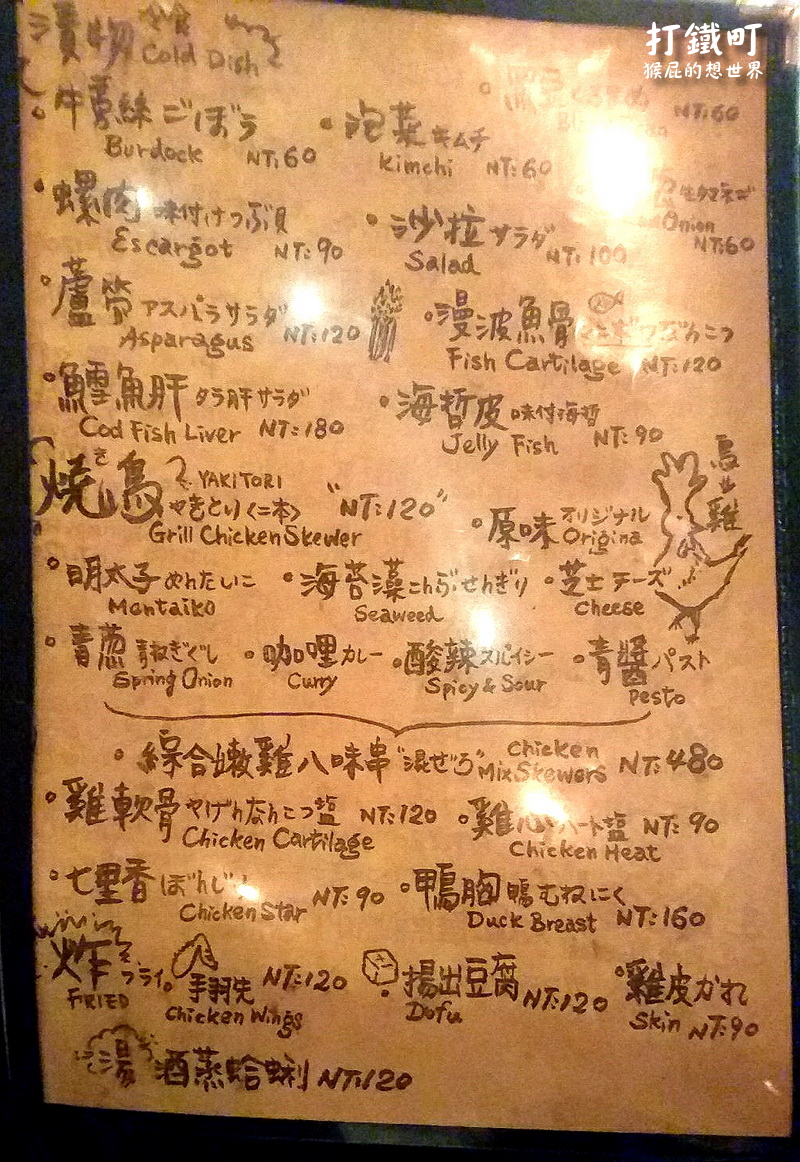 打鐵町
猴屁的想世界
漬物 Cold Dish
牛蒡絲 ごぼう Burdock NT:60
泡菜 キムチ Kimchi NT:60
NT:60
螺肉 味付けつぶ貝 Escargot NT:90
沙拉 サラダ Salad NT:100
Onion NT:60
蘆筍 アスパラサラダ Asparagus NT:120
漫波魚骨 Fish Cartilage NT:120
鱈魚肝 タラ肝サラダ Cod Fish Liver NT:180
海哲皮 味付海哲 Jelly Fish NT:90
燒鳥 YAKITORI やきとり〈二本〉 "NT:120"
Grill Chicken Skewer
原味 オリジナル Origina
明太子 めんたいこ Mentaiko
海苔藻 こんぶせんぎり Seaweed
芝士 チーズ cheese
青蔥 Spring Onion
咖哩 カレー Curry
酸辣 スパイシー Spicy & Sour
青醬 パスト Pesto
綜合嫩雞八味串 "混ぜろ" Chicken Mix Skewers NT:480
雞軟骨 やげんなんこつ塩 NT:120 Chicken Cartilage
雞心 ハート塩 NT:90 Chicken Heat
七里香 Chicken Star NT:90
鴨胸 鴨むねにく Duck Breast NT:160
炸 フライ FRIED
手羽先 NT:120 Chicken Wings
揚出豆腐 Dofu NT:120
雞皮かれ Skin NT:90
湯 酒蒸蛤蜊 NT:120